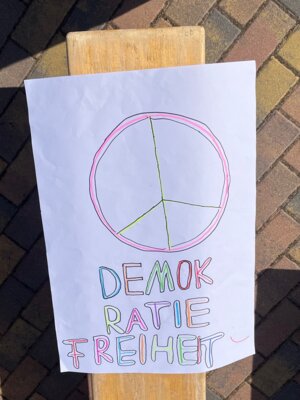 DEMOK
RATIE
FREIHEIT